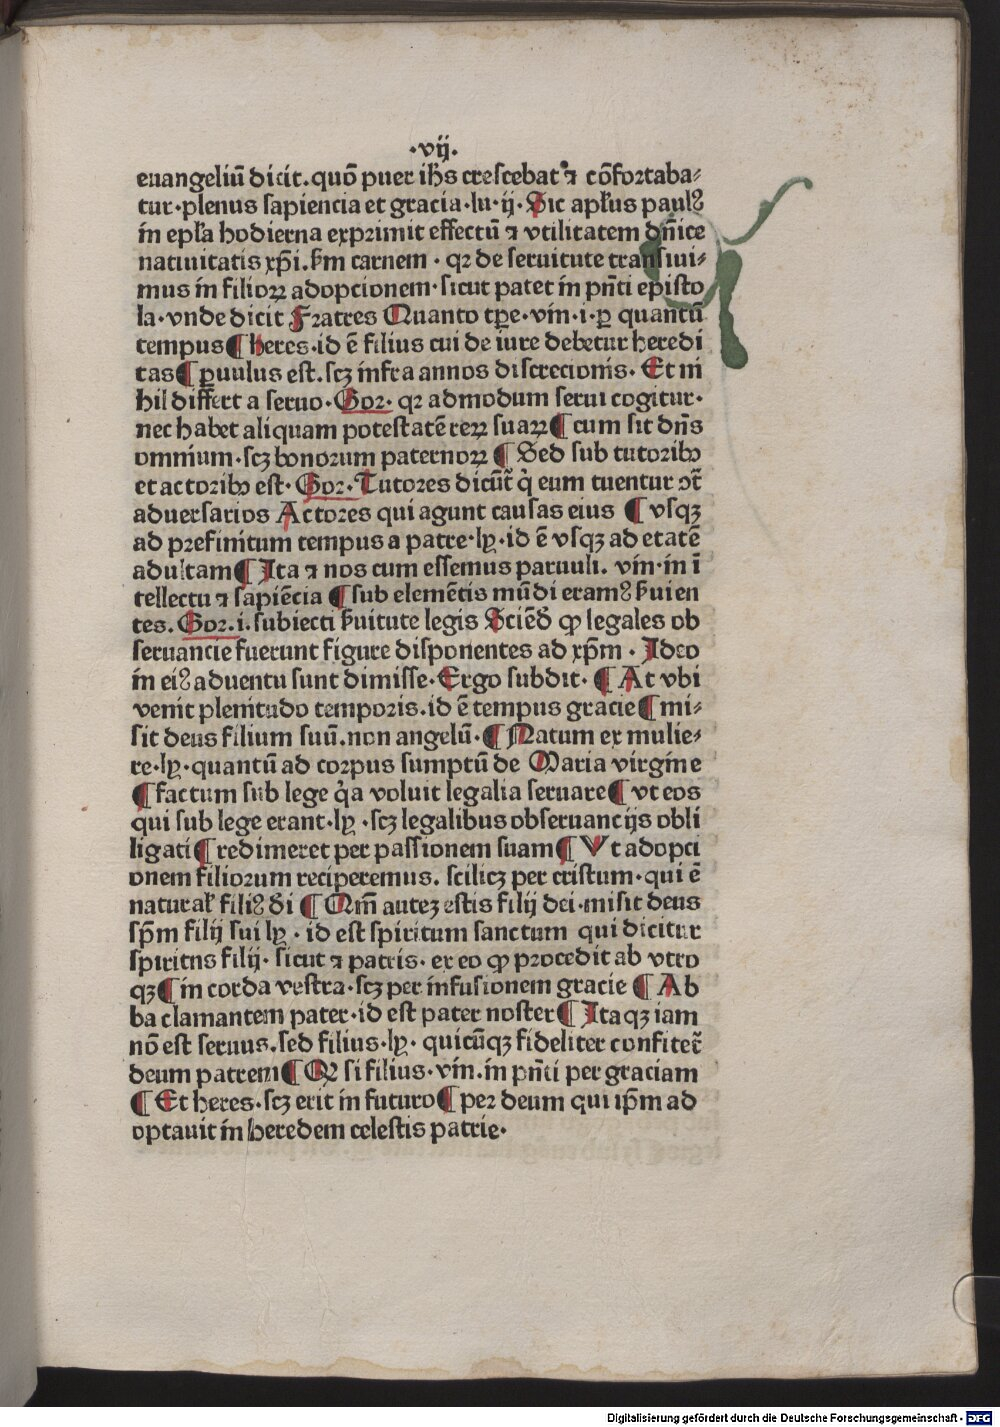 ·vij·
euangeliū dicit. quō puer ihs̄ crescebat ⁊ cōfortaba⸗
tur·plenus sapiencia et gracia·lu·ij·Sic apl'us paulꝰ
in epl'a hodierna exprimit effectū ⁊ vtilitatem dn̄ice
natiuitatis xp̄i. ẜm carnem · qꝛ de seruitute transiui⸗
mus in filioꝝ adopcionem·sicut patet in pn̄ti episto
la·vnde dicit Fratres Quanto tꝑe·vin·i·ꝑ quantū
tempus ¶ heres·id ē filius cui de iure debetur heredi
tas ¶ ꝑuulus est. scꝫ infra annos discrecionis. Et ni
hil differt a seruo·Gor· qꝛ admodum serui cogitur·
nec habet aliquam potestatē reꝝ suaꝝ ¶ cum sit dn̄s
omnium·scꝫ bonorum paternoꝝ ¶ Sed sub tutoribꝰ
et actoribꝰ est· Gor·Tutores dicūt' q̇ eum tuentur ↄt̄
aduersarios Actores qui agunt causas eius ¶ vsqꝫ
ad prefinitum tempus a patre·lꝫ·id ē vsqꝫ ad etatē
adultam ¶ Ita ⁊ nos cum essemus paruuli. vin·in ī
tellectu ⁊ sapiēcia ¶ sub elemētis mūdi eramꝰ ẜuien
tes. Gor.i.subiecti ẜuitute legis Sciēđ ꝙ legales ob
seruancie fuerunt figure disponentes ad xp̄m · Ideo
in eiꝰ aduentu sunt dimisse·Ergo subdit· ¶ At vbi
venit plenitudo temporis. id ē tempus gracie ¶ mi⸗
sit deus filium suū.non angelū· ¶ Natum ex mulie⸗
re·lꝫ·quantū ad corpus sumptū de Maria virgine
¶ factum sub lege q̇a voluit legalia seruare ¶ vt eos
qui sub lege erant·lꝫ ·scꝫ legalibus obseruancijs obli
ligati ¶ redimeret per passionem suam ¶ Vt adopci
onem filiorum reciperemus. scilicꝫ per cristum·qui ē
natural' filiꝰ đi ¶ Qm̄ auteꝫ estis filij dei·misit deus
sp̄m filij sui lꝫ · id est spiritum sanctum qui dicitur
spiritns filij· sicut ⁊ patris· ex eo ꝙ procedit ab vtro
qꝫ ¶ in corda vestra·scꝫ per infusionem gracie ¶ Ab
ba clamantem pater·id est pater noster ¶ Itaqꝫ iam
nō est seruus.sed filius·lꝫ· quicūqꝫ fideliter confitet'
deum patrem ¶ Qꝛ si filius·vin.in pn̄ti per graciam
¶ Et heres·scꝫ erit in futuro ¶ per deum qui ip̄m ad
optauit in heredem celestis patrie·
Digitalisierung gefördert durch die Deutsche Forschungsgemeinschaft - DFG